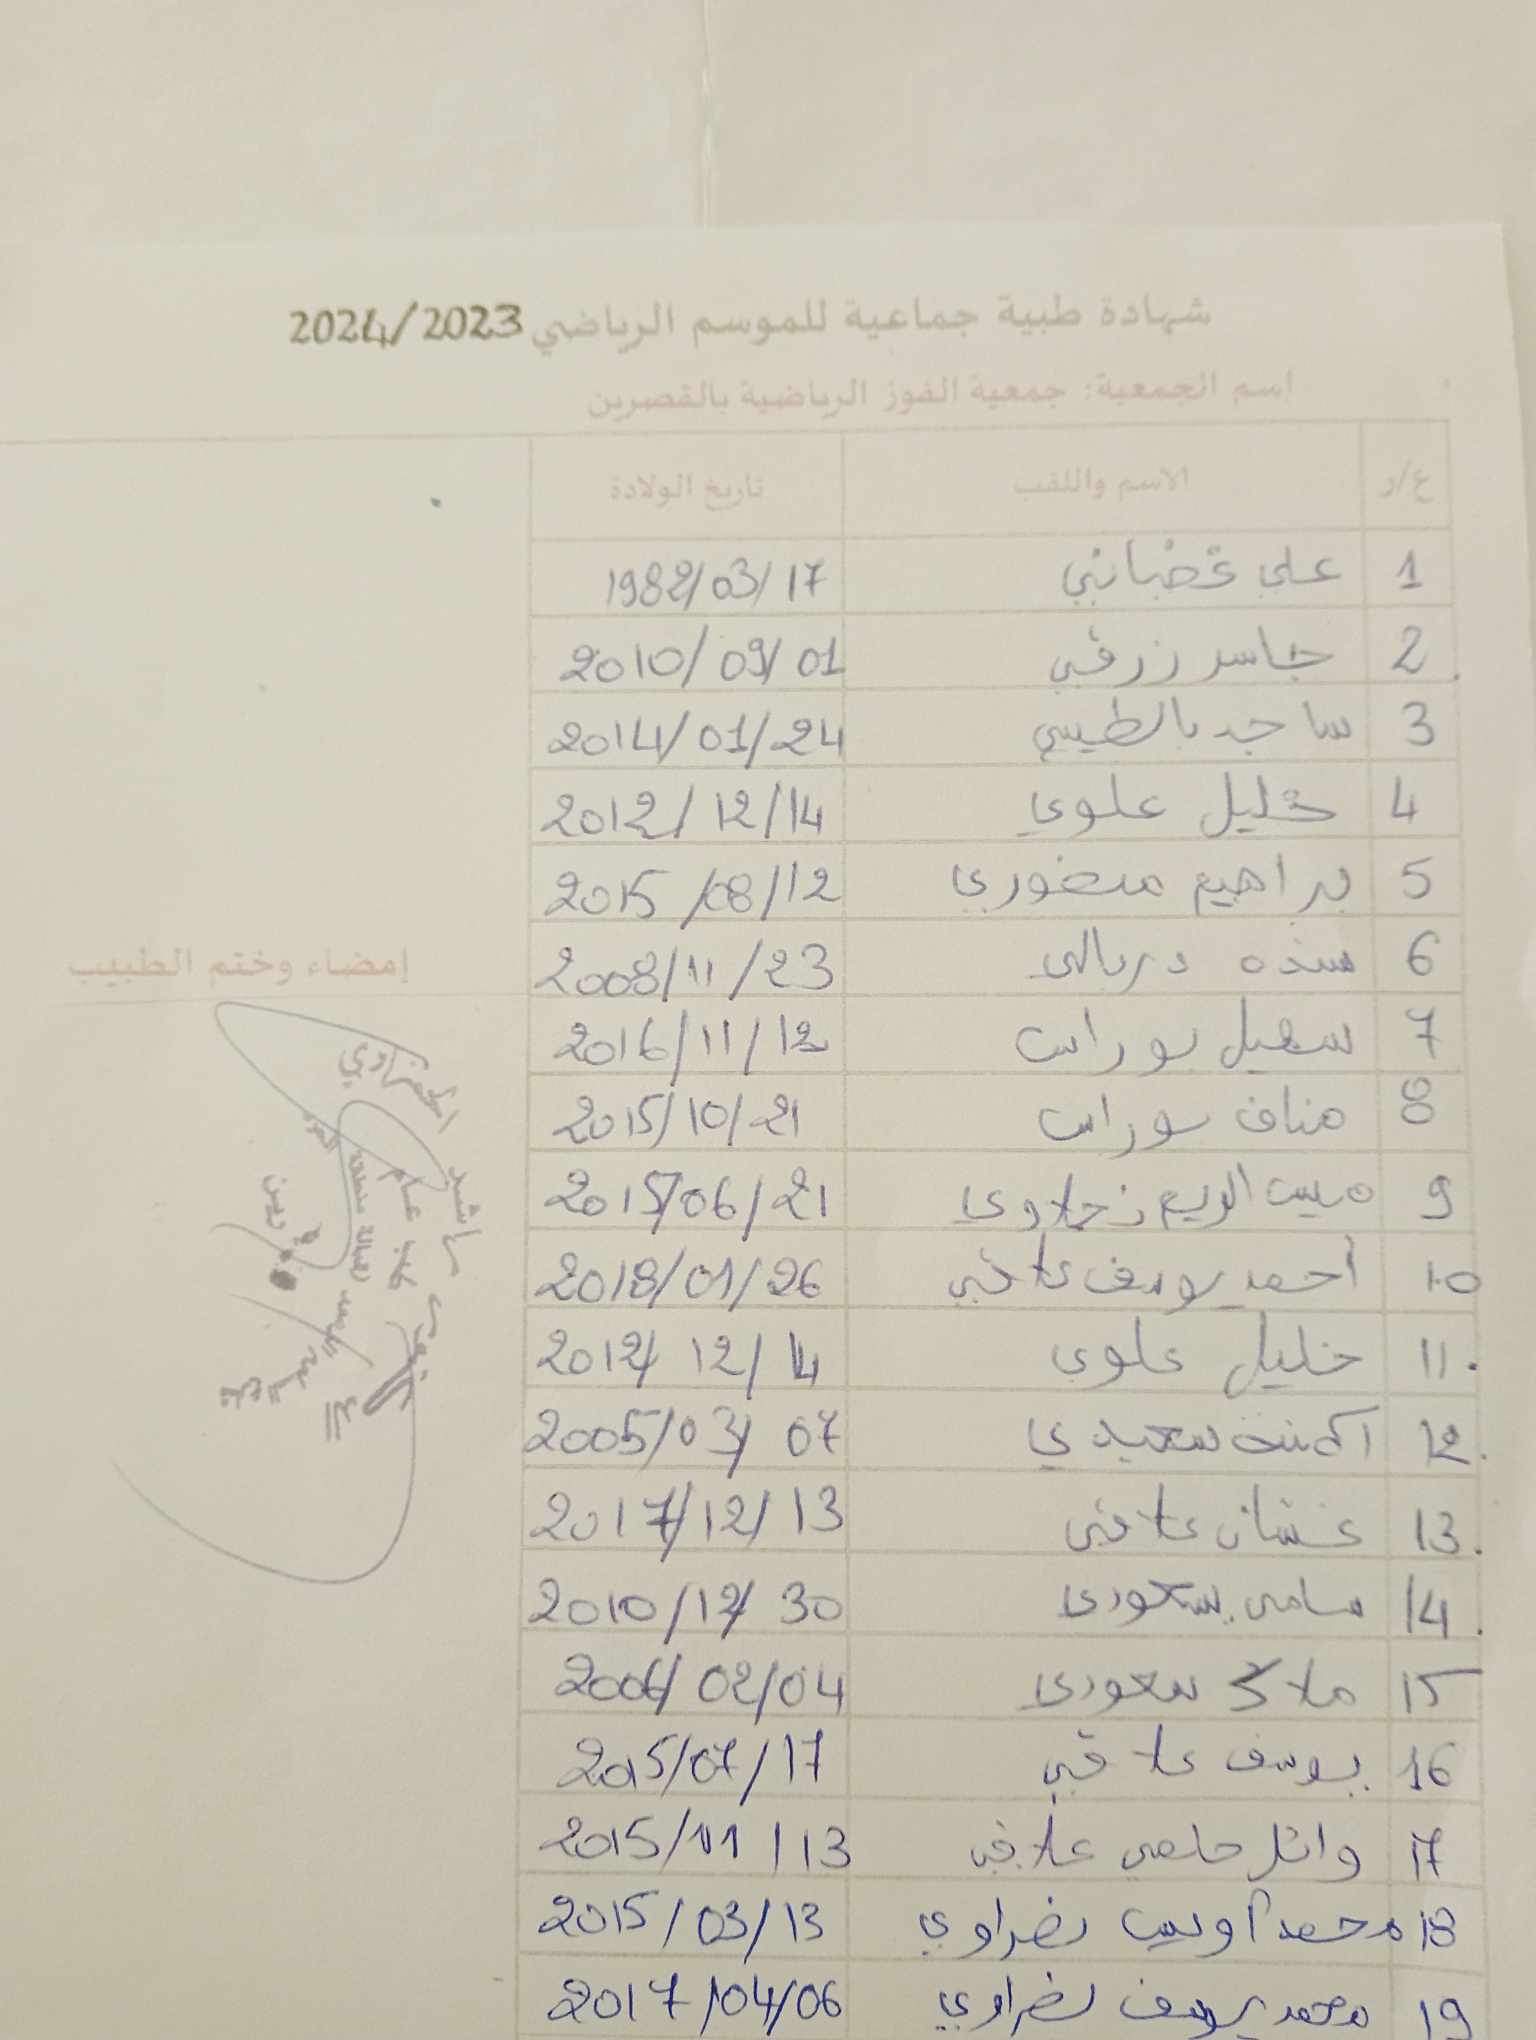 شهادة طبية جماعية للموسم الرياضي 2024/2023
اسم الجمعية: جمعية الفوز الرياضية بالقصرين
ع/ر الاسم واللقب تاريخ الولادة
1 علي غضباني 1982/03/17
2 جاسر زرقي 2010/09/01
3 ساجد بالطيبي 2014/01/24
4 خليل علوي 2012/12/14
5 براهيم منصوري 2015/08/12
6 دربالي 2008/11/23
إمضاء وختم الطبيب
7 سهيل بوراس 2016/11/12
8 مناف بوراس 2015/10/21
9 2015/06/21
10 أحمد يوسف علاقي 2018/01/26
11 خليل علوي 2012/12/14
12 سعيدي 2005/03/07
13 غسان علاقي 2017/12/13
14 سامي سعودي 2010/12/30
15 ملاك سعودي 2006/02/04
16 يوسف علاقي 2015/07/17
17 وائل حلمي علاقي 2015/11/13
18 محمد أويس نصراوي 2015/03/13
19 محمد يوسف نصراوي 2017/04/06